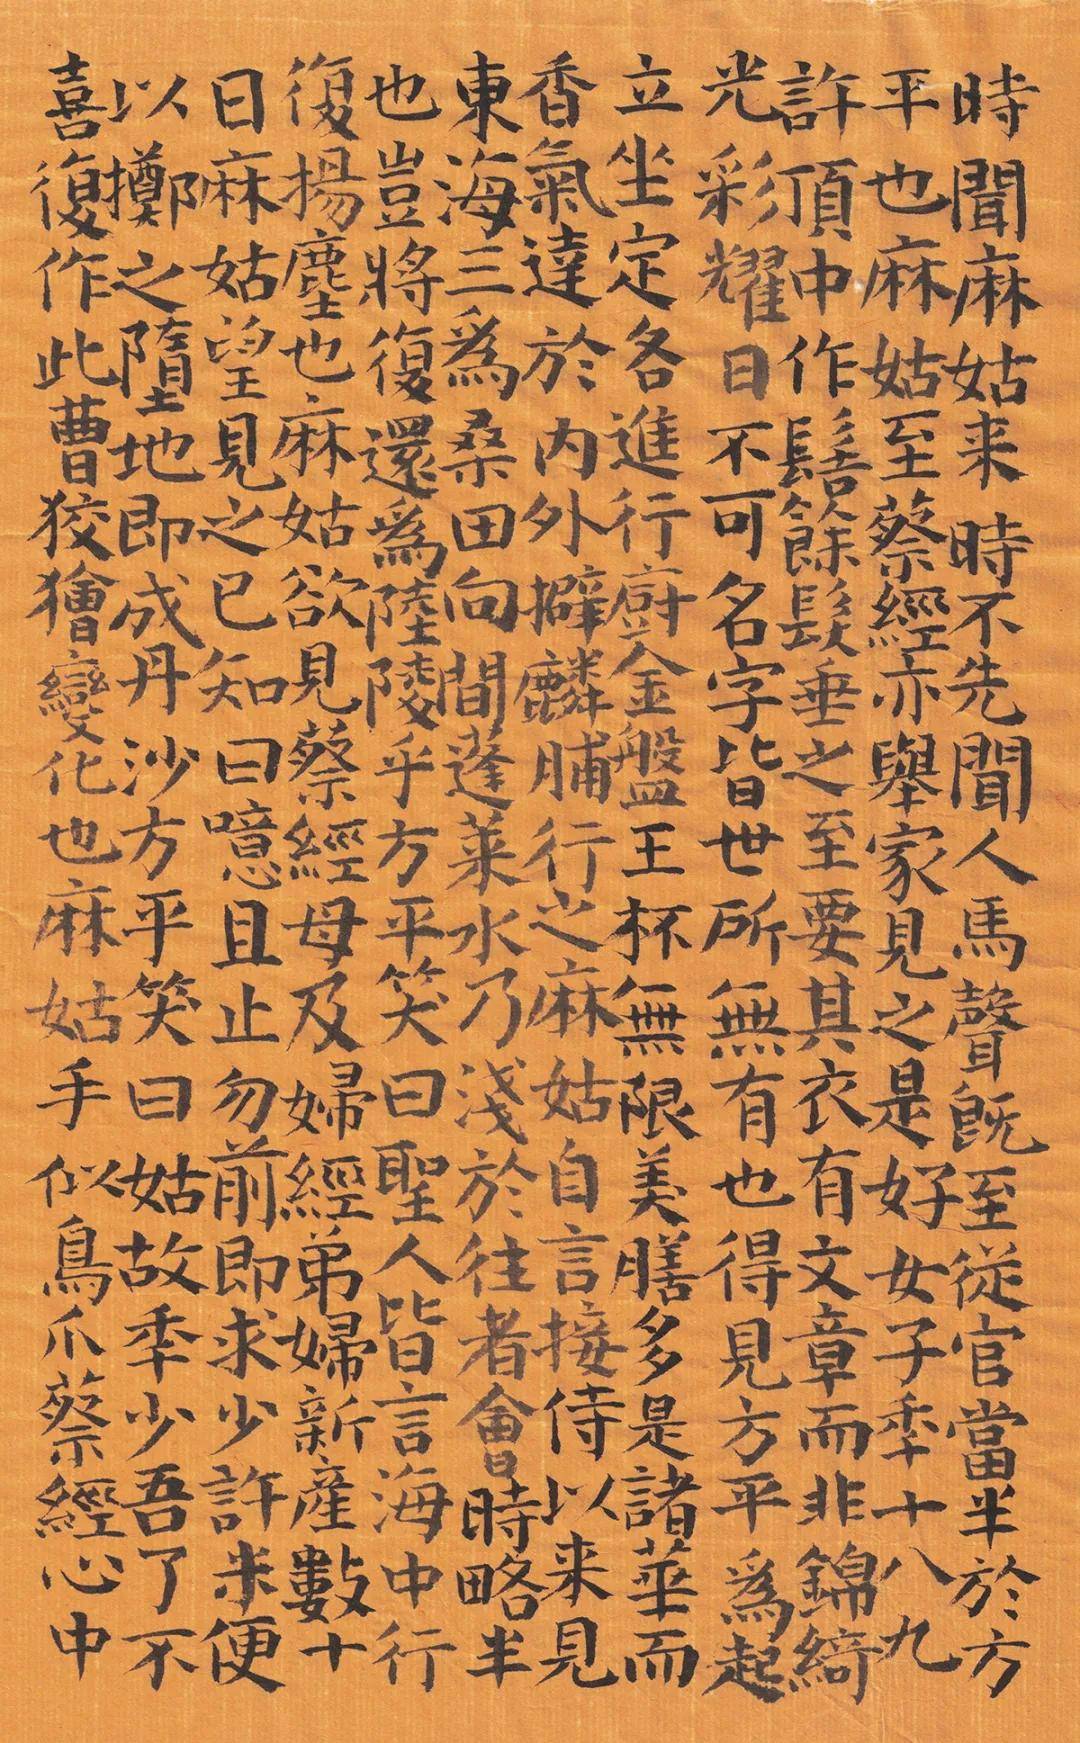 時聞麻姑来時不先聞人馬聲既至從官當半於方
平也麻姑至蔡經亦舉家見之是好女子季十八九
許頂中作髻餘髮垂之至要其衣有文章而非錦綺
光彩耀日不可名字皆世所無有也得見方平為起
立坐定各進行廚金盤玉杯無限美膳多是諸華而
香氣達於內外擗麟脯行之麻姑自言接侍以来見
東海三為桑田向間蓬萊水乃淺於往者會時略半
也豈將復還為陸陵乎方平笑曰聖人皆言海中行
復揚塵也麻姑欲見蔡經母及婦經弟婦新產數十
日麻姑望見之已知曰噫且止勿前即求少許米便
以擲之墮地即成丹沙方平笑曰姑故季少吾了不
喜復作此曹狡獪變化也麻姑手似鳥爪蔡經心中